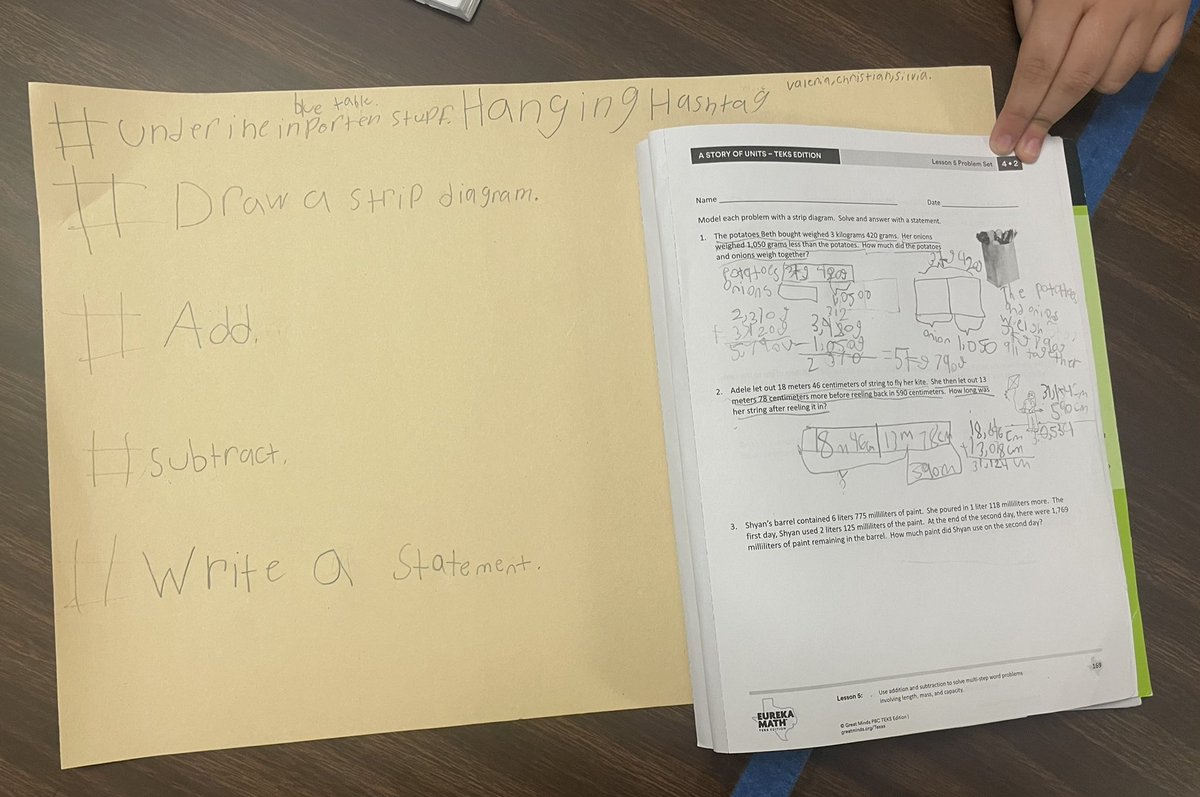 valeria, christian, silvia.
blue table.
# underline inporten stuff. Hanging Hashtag
# Draw a strip diagram.
# Add.
# subtract.
# Write a Statement.
A STORY OF UNITS – TEKS EDITION
Lesson 5 Problem Set 4•2
Name
Date
Model each problem with a strip diagram. Solve and answer with a statement.
1. The potatoes Beth bought weighed 3 kilograms 420 grams. Her onions
weighed 1,050 grams less than the potatoes. How much did the potatoes
and onions weigh together?
potatoes 3kg 420g
onions
2,370g
+ 3,420g
5,790g
1,050g
2 370
= 5kg 790g
onion 1,050
The potatoes
and onions
weigh
5kg 790g
all together
2. Adele let out 18 meters 46 centimeters of string to fly her kite. She then let out 13
meters 78 centimeters more before reeling back in 590 centimeters. How long was
her string after reeling it in?
18m 46cm 13m 78cm
590cm
?
18,046 cm
+ 13,078 cm
31,124 cm
590cm
3. Shyan's barrel contained 6 liters 775 milliliters of paint. She poured in 1 liter 118 milliliters more. The
first day, Shyan used 2 liters 125 milliliters of the paint. At the end of the second day, there were 1,769
milliliters of paint remaining in the barrel. How much paint did Shyan use on the second day?
EUREKA
MATH
TEKS EDITION
Lesson 5: Use addition and subtraction to solve multi-step word problems
involving length, mass, and capacity.
© Great Minds PBC TEKS Edition |
greatminds.org/Texas
169